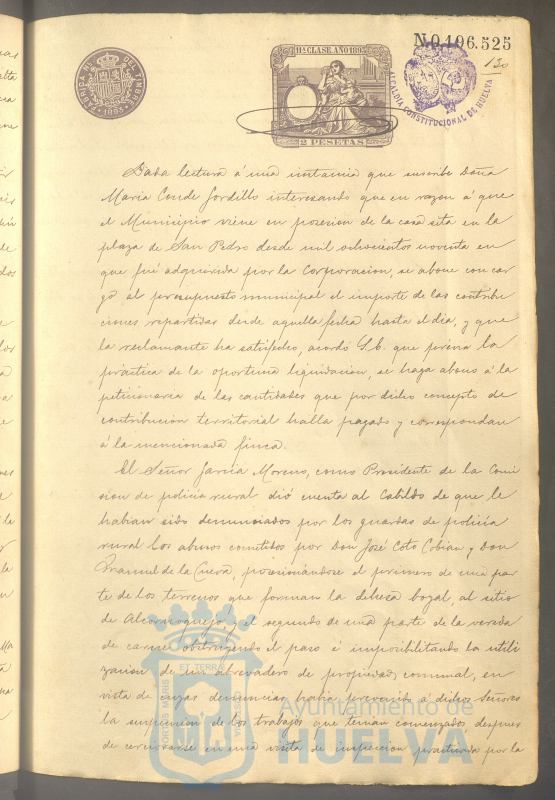 Nº 0.106.525
130
11ª CLASE. AÑO 1893
2 PESETAS
FABRICA NAL DEL TIMBRE
1893
ALCALDÍA CONSTITUCIONAL DE HUELVA
Dada lectura á una instancia que suscribe Doña
Maria Conde Gordillo interesando que en razon á que
el Municipio viene en posesion de la casa sita en la
plaza de San Pedro desde mil ochocientos noventa en
que fué adquirida por la Corporacion, se abone con car
go al presupuesto municipal el importe de las contribu
ciones repartidas desde aquella fecha hasta el dia, y que
la reclamante ha satisfecho, acordó S.E. que previa la
práctica de la oportuna liquidacion, se haga abono á la
peticionaria de las cantidades que por dicho concepto de
contribucion territorial halla pagado y correspondan
á la mencionada finca.
El Señor Garcia Moreno, como Presidente de la Comi
sion de policia rural dió cuenta al Cabildo de que le
habian sido denunciados por los guardas de policia
rural los abusos cometidos por Don José Coto Cobian y Don
Manuel de la Cueva, posesionándose el primero de una par
te de los terrenos que forman la dehesa boyal, al sitio
de Alcornoquejo, y el segundo de una parte de la vereda
de carne obstruyendo el paso é imposibilitando la utili
zacion de un abrevadero de propiedad comunal, en
vista de cuyas denuncias habia prevenido á dichos Señores
la suspension de los trabajos que tenian comenzados despues
de cerciorarse en una visita de inspeccion practicada por la
PORTUS MARIS
ET TERRAE
Ayuntamiento de
HUELVA